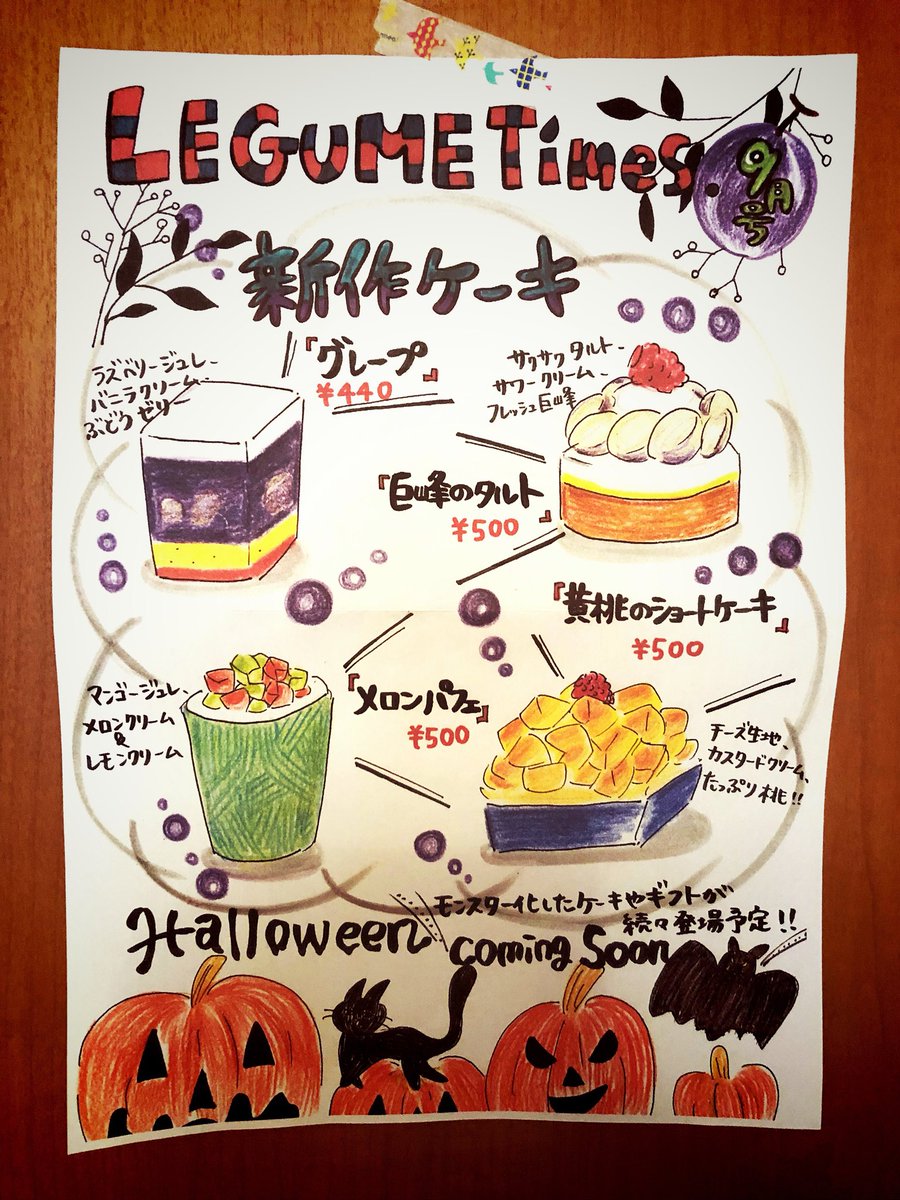 LEGUME Times
9月号
新作ケーキ
『グレープ』
¥440
ラズベリージュレ、
バニラクリーム、
ぶどうゼリー
サクサクタルト、
サワークリーム、
フレッシュ巨峰
『巨峰のタルト』
¥500
『黄桃のショートケーキ』
¥500
『メロンパフェ』
¥500
マンゴージュレ、
メロンクリーム
&
レモンクリーム
チーズ生地、
カスタードクリーム、
たっぷり桃!!
モンスター化したケーキやギフトが
続々登場予定!!
Halloween coming Soon